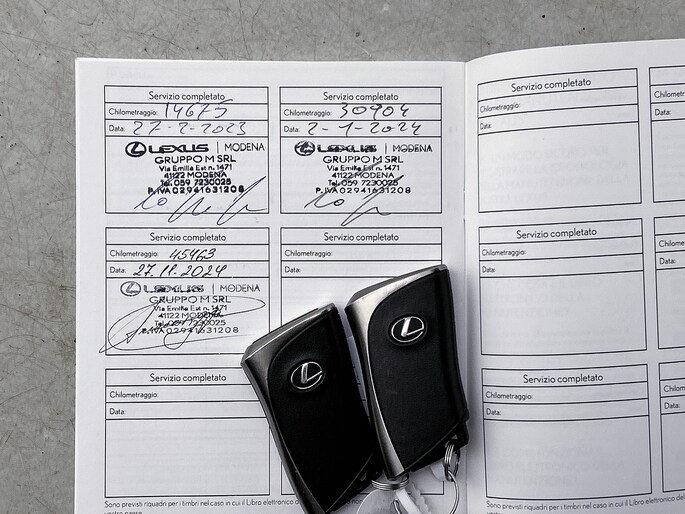 Servizio completato
Chilometraggio: 14675
Data: 27-2-2023
LEXUS | MODENA
GRUPPO M SRL
Via Emilia Est n. 1471
41122 MODENA
Tel. 059 7230025
P. IVA 02941631208
Servizio completato
Chilometraggio: 30904
Data: 2-1-2024
LEXUS | MODENA
GRUPPO M SRL
Via Emilia Est n. 1471
41122 MODENA
Tel. 059 7230025
P. IVA 02941631208
Servizio completato
Chilometraggio: 45463
Data: 27.11.2024
LEXUS | MODENA
GRUPPO M SRL
Via Emilia Est n. 1471
41122 MODENA
Tel. 059 7230025
P. IVA 02941631208
Servizio completato
Chilometraggio:
Data:
Servizio completato
Chilometraggio:
Data:
Sono previsti riquadri per i timbri nel caso in cui il Libro elettronico d
Servizio completato
Chilometraggio:
Data:
Servizio completato
Chilometraggio:
Data:
Servizio completato
Chilometraggio:
Data:
Sono previsti riquadri per i timbri nel caso in cui il Libro elettronico